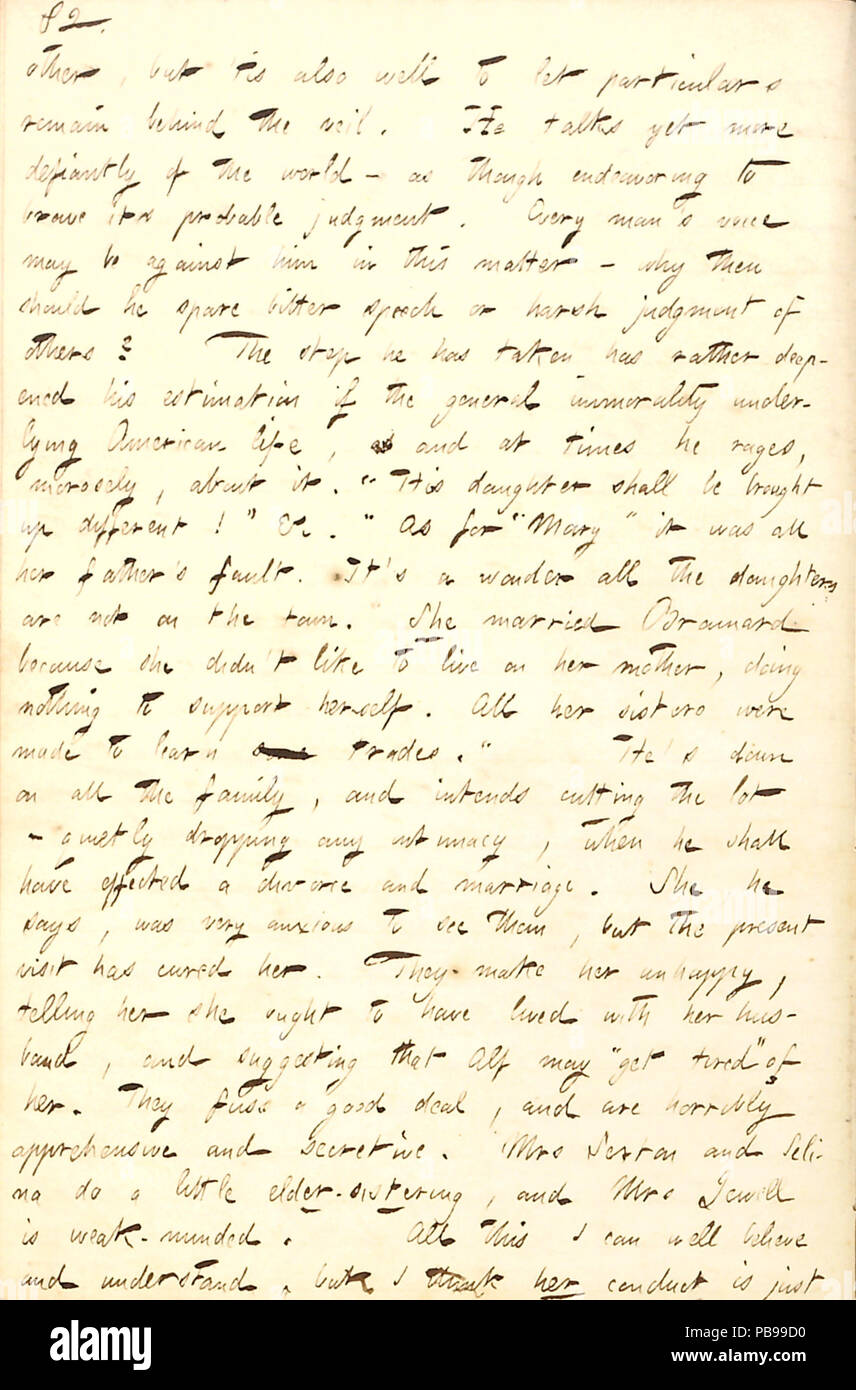 82.
other, but 'tis also well to let particulars
remain behind the veil. He talks yet more
defiantly of the world - as though endeavoring to
brave its probable judgment. Every man's voice
may be against him in this matter - why then
should he spare bitter speech or harsh judgment of
others? The step he has taken has rather deep-
ened his estimation of the general immorality under-
lying American life, and at times he rages,
morosely, about it. "His daughter shall be brought
up different!" &c. "As for "Mary" it was all
her father's fault. It's a wonder all the daughters
are not on the town. She married Brainard
because she didn't like to live on her mother, doing
nothing to support herself. All her sisters were
made to learn trades." He's down
on all the family, and intends cutting the lot
- quietly dropping any intimacy, when he shall
have effected a divorce and marriage. She he
says, was very anxious to see them, but the present
visit has cured her. They make her unhappy,
telling her she ought to have lived with her hus-
band, and suggesting that Alf may "get tired" of
her. They fuss a good deal, and are horribly
apprehensive and secretive. Mrs Sexton and Seli-
na do a little elder-sistering, and Mrs Jewell
is weak-minded. All this I can well believe
and understand, but I think her conduct is just
alamy stock photo
PB99D0
www.alamy.com